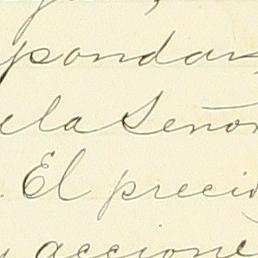 pondan
ela Señor
. El preci
y accione